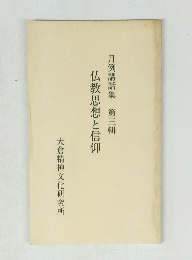 月例講話集 第三輯
仏教思想と信仰
大倉精神文化研究所